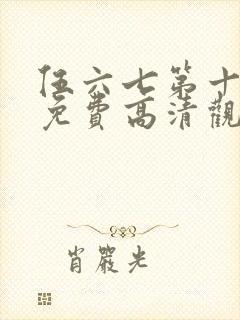 伍六七第十
免費高清觀
肖嚴光